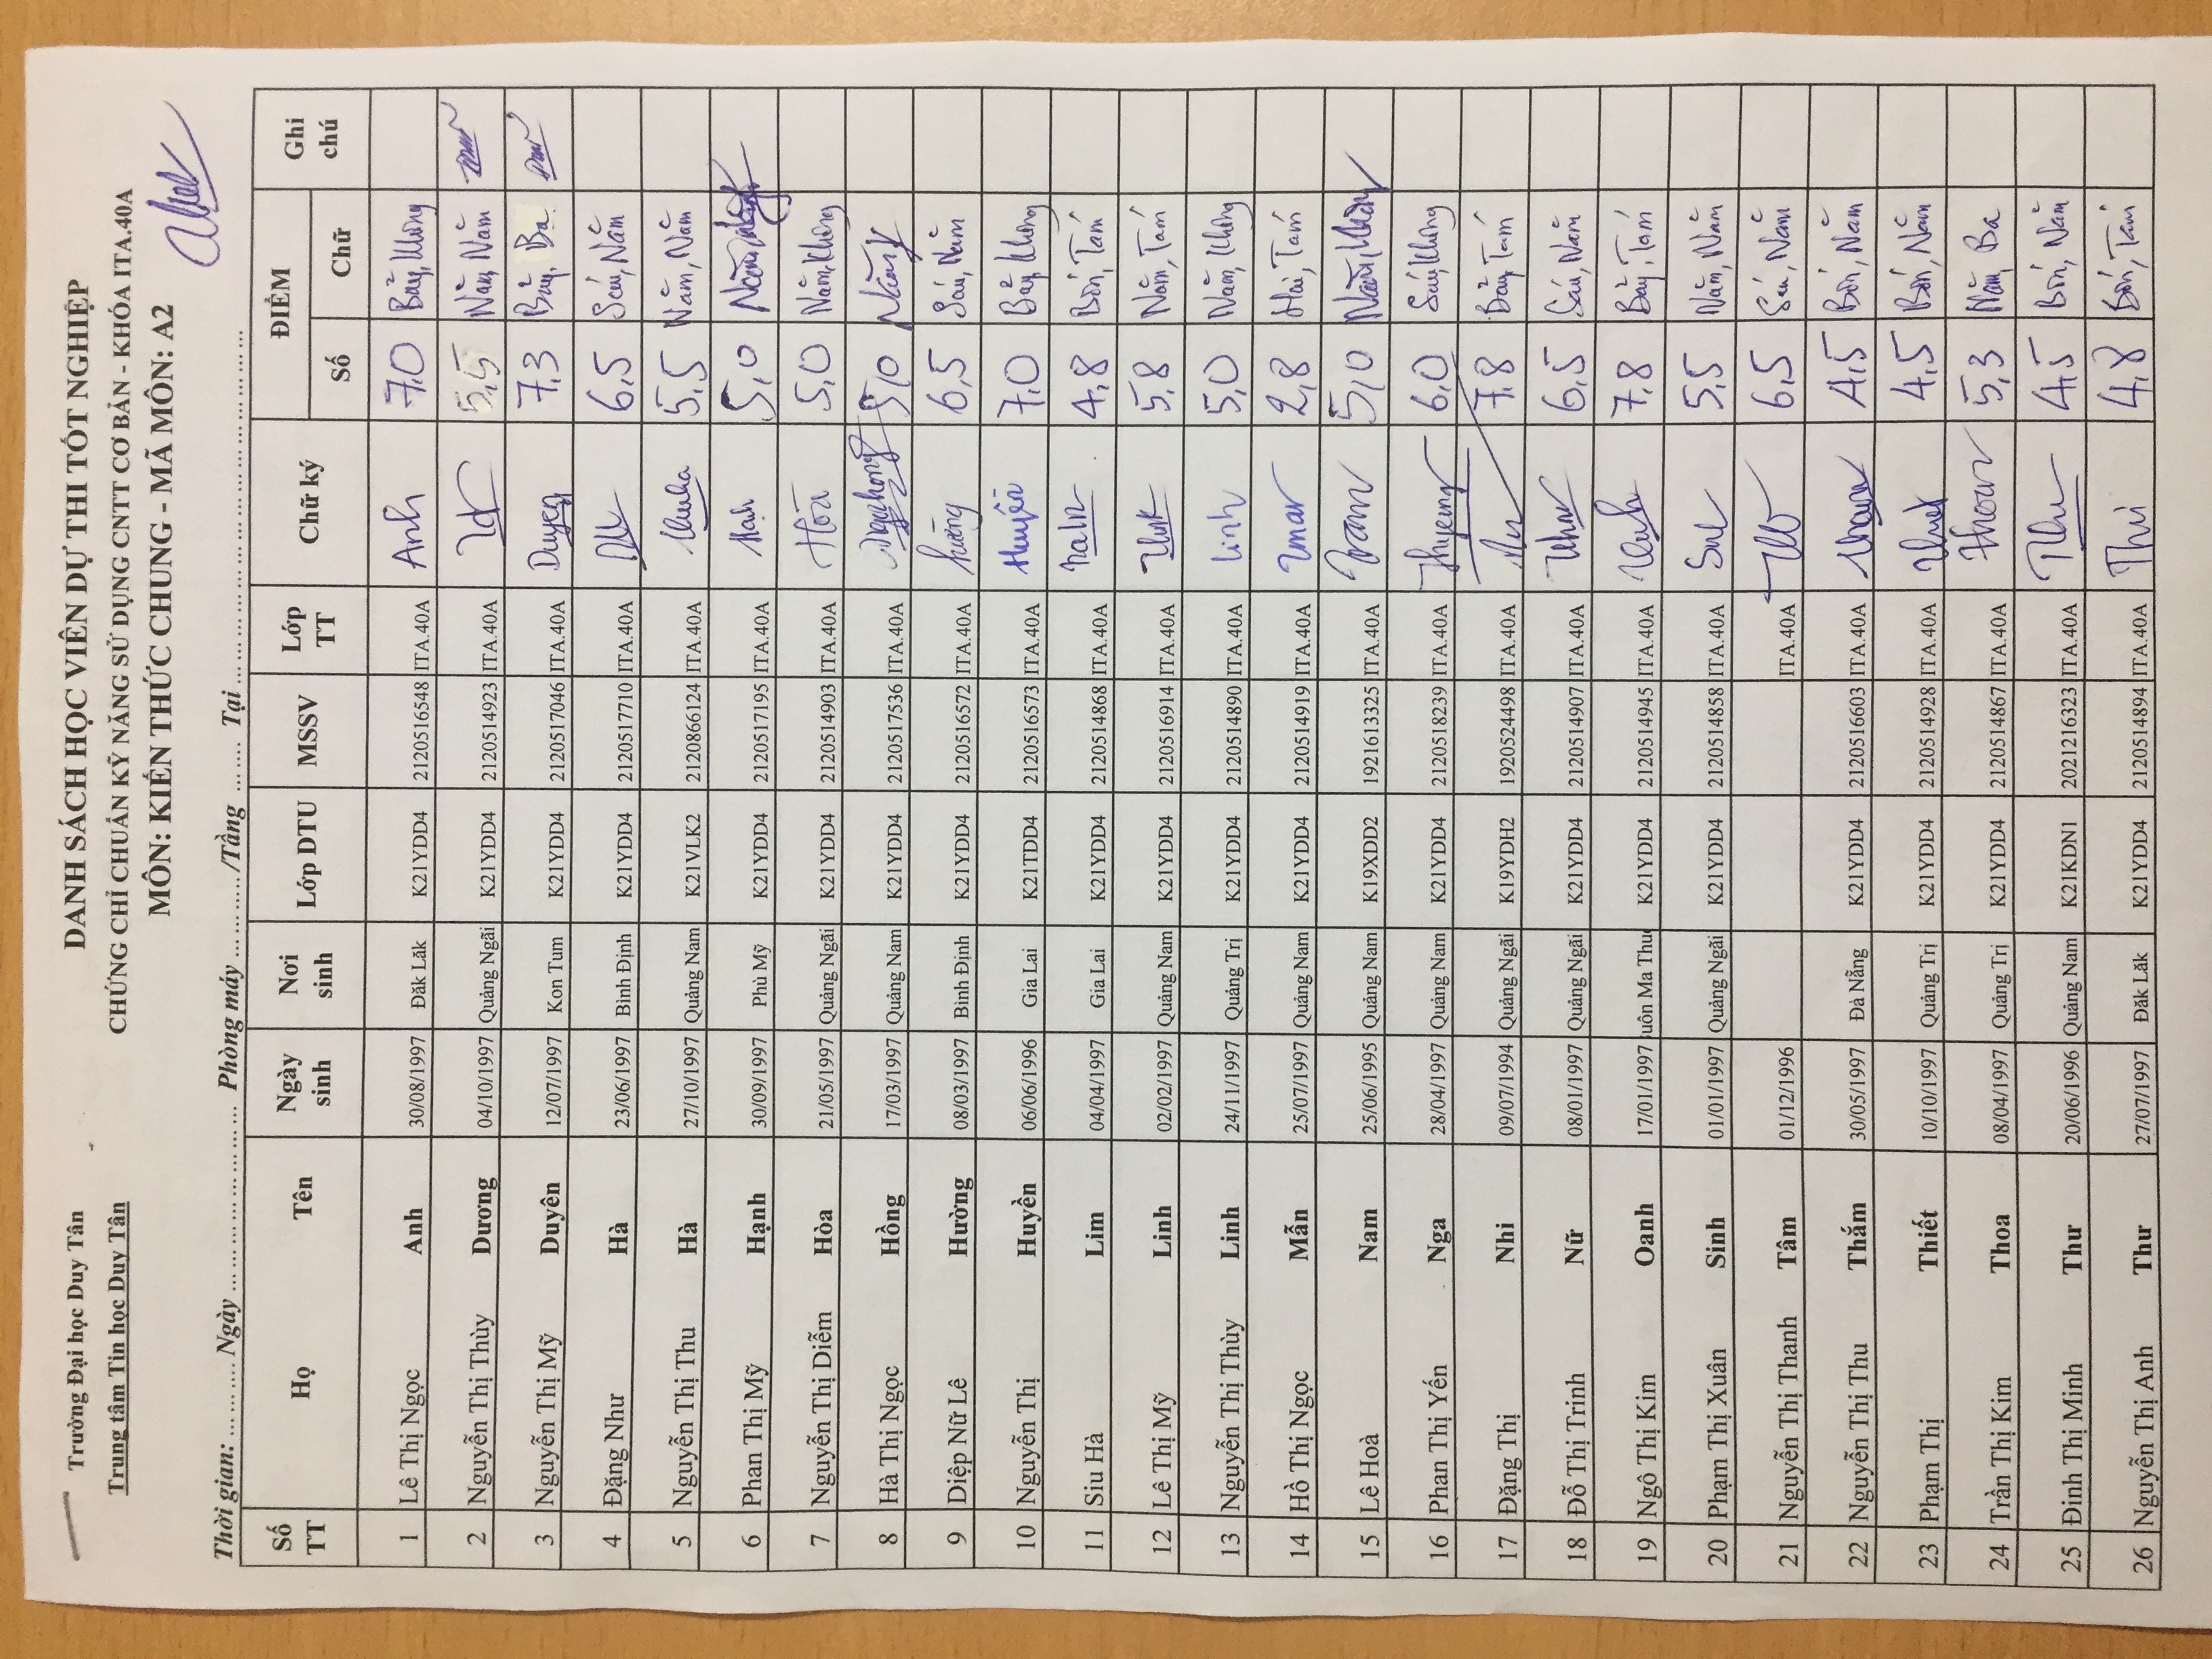 Trường Đại học Duy Tân
Trung tâm Tin học Duy Tân
DANH SÁCH HỌC VIÊN DỰ THI TỐT NGHIỆP
CHỨNG CHỈ CHUẨN KỸ NĂNG SỬ DỤNG CNTT CƠ BẢN - KHÓA ITA.40A
MÔN: KIẾN THỨC CHUNG - MÃ MÔN: A2
Thời gian: ... ... ... Ngày ... ... ... ... ... ... ... Phòng máy ... ... .../Tầng ... ... Tại ... ... ... ... ... ... ... ... ... ... ...
Số TT Họ Tên Ngày sinh Nơi sinh Lớp DTU MSSV Lớp TT Chữ ký ĐIỂM Số Chữ Ghi chú
1 Lê Thị Ngọc Anh 30/08/1997 Đăk Lăk K21YDD4 2120516548 ITA.40A Anh 7,0 Bảy, Không
2 Nguyễn Thị Thùy Dương 04/10/1997 Quảng Ngãi K21YDD4 2120514923 ITA.40A 5,5 Năm, Năm
3 Nguyễn Thị Mỹ Duyên 12/07/1997 Kon Tum K21YDD4 2120517046 ITA.40A Duyen 7,3 Bảy, Ba
4 Đặng Như Hà 23/06/1997 Bình Định K21YDD4 2120517710 ITA.40A 6,5 Sáu, Năm
5 Nguyễn Thị Thu Hà 27/10/1997 Quảng Nam K21VLK2 2120866124 ITA.40A 5,5 Năm, Năm
6 Phan Thị Mỹ Hạnh 30/09/1997 Phù Mỹ K21YDD4 2120517195 ITA.40A Hạnh 5,0 Năm, Không
7 Nguyễn Thị Diễm Hòa 21/05/1997 Quảng Ngãi K21YDD4 2120514903 ITA.40A Hòa 5,0 Năm, Không
8 Hà Thị Ngọc Hồng 17/03/1997 Quảng Nam K21YDD4 2120517536 ITA.40A 5,0 Năm
9 Diệp Nữ Lê Hường 08/03/1997 Bình Định K21YDD4 2120516572 ITA.40A Hường 6,5 Sáu, Năm
10 Nguyễn Thị Huyền 06/06/1996 Gia Lai K21TDD4 2120516573 ITA.40A Huyền 7,0 Bảy, Không
11 Siu Hà Lim 04/04/1997 Gia Lai K21YDD4 2120514868 ITA.40A 4,8 Bốn, Tám
12 Lê Thị Mỹ Linh 02/02/1997 Quảng Nam K21YDD4 2120516914 ITA.40A 5,8 Năm, Tám
13 Nguyễn Thị Thùy Linh 24/11/1997 Quảng Trị K21YDD4 2120514890 ITA.40A Linh 5,0 Năm, Không
14 Hồ Thị Ngọc Mẫn 25/07/1997 Quảng Nam K21YDD4 2120514919 ITA.40A 2,8 Hai, Tám
15 Lê Hoà Nam 25/06/1995 Quảng Nam K19XDD2 1921613325 ITA.40A 5,0 Năm, Không
16 Phan Thị Yến Nga 28/04/1997 Quảng Nam K21YDD4 2120518239 ITA.40A 6,0 Sáu, Không
17 Đặng Thị Nhi 09/07/1994 Quảng Ngãi K19YDH2 1920524498 ITA.40A 7,8 Bảy, Tám
18 Đỗ Thị Trinh Nữ 08/01/1997 Quảng Ngãi K21YDD4 2120514907 ITA.40A 6,5 Sáu, Năm
19 Ngô Thị Kim Oanh 17/01/1997 uôn Ma Thu K21YDD4 2120514945 ITA.40A 7,8 Bảy, Tám
20 Phạm Thị Xuân Sinh 01/01/1997 Quảng Ngãi K21YDD4 2120514858 ITA.40A 5,5 Năm, Năm
21 Nguyễn Thị Thanh Tâm 01/12/1996 ITA.40A 6,5 Sáu, Năm
22 Nguyễn Thị Thu Thắm 30/05/1997 Đà Nẵng K21YDD4 2120516603 ITA.40A 4,5 Bốn, Năm
23 Phạm Thị Thiết 10/10/1997 Quảng Trị K21YDD4 2120514928 ITA.40A 4,5 Bốn, Năm
24 Trần Thị Kim Thoa 08/04/1997 Quảng Trị K21YDD4 2120514867 ITA.40A 5,3 Năm, Ba
25 Đinh Thị Minh Thư 20/06/1996 Quảng Nam K21KDN1 2021216323 ITA.40A Thu 4,5 Bốn, Năm
26 Nguyễn Thị Anh Thư 27/07/1997 Đăk Lăk K21YDD4 2120514894 ITA.40A Thư 4,8 Bốn, Tám